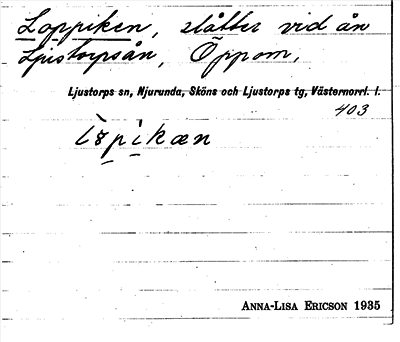 Loppiken, slåtter vid ån
Ljustorpsån, Öppom,
Ljustorps sn, Njurunda, Sköns och Ljustorps tg, Västernorrl. l.
403
ANNA-LISA ERICSON 1935